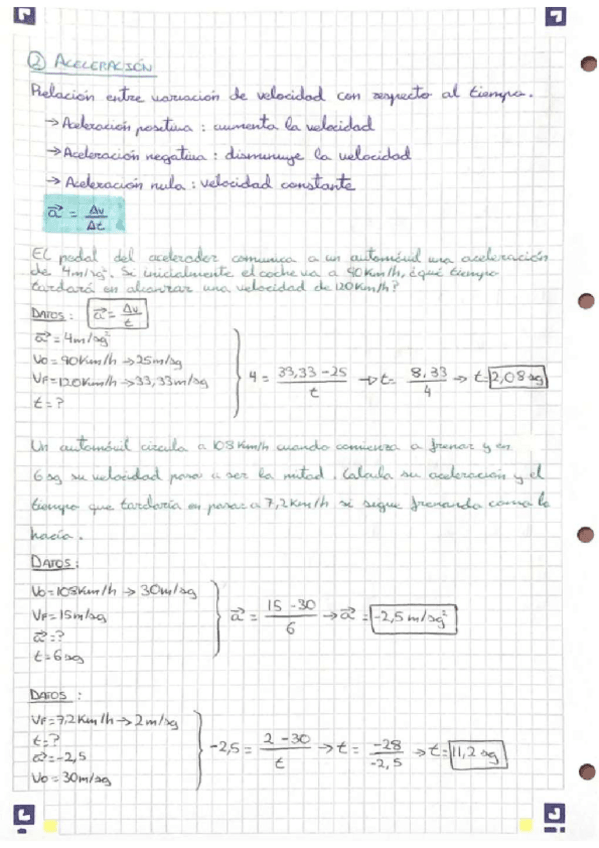 ② ACELERACIÓN
Relación entre variación de velocidad con respecto al tiempo.
→ Aceleración positiva : aumenta la velocidad
→ Aceleración negativa : disminuye la velocidad
→ Aceleración nula : velocidad constante
a⃗ = Δv/Δt
El pedal del acelerador comunica a un automóvil una aceleración
de 4m/sg². Si inicialmente el coche va a 90Km/h, ¿qué tiempo
tardará en alcanzar una velocidad de 120Km/h?
DATOS : a⃗ = Δv/t
a⃗ = 4m/sg²
Vo = 90Km/h → 25m/sg
VF = 120Km/h → 33,33m/sg
t = ?
4 = (33,33 - 25)/t → t = 8,33/4 → t = 2,08 sg
Un automóvil circula a 108 Km/h cuando comienza a frenar y en
6 sg su velocidad pasa a ser la mitad. Calcula su aceleración y el
tiempo que tardaría en pasar a 7,2 Km/h si sigue frenando como lo
hacía.
DATOS :
Vo = 108Km/h → 30m/sg
VF = 15m/sg
a⃗ = ?
t = 6 sg
a⃗ = (15 - 30)/6 → a⃗ = -2,5 m/sg²
DATOS :
VF = 7,2 Km/h → 2 m/sg
t = ?
a⃗ = -2,5
Vo = 30m/sg
-2,5 = (2 - 30)/t → t = -28/-2,5 → t = 11,2 sg